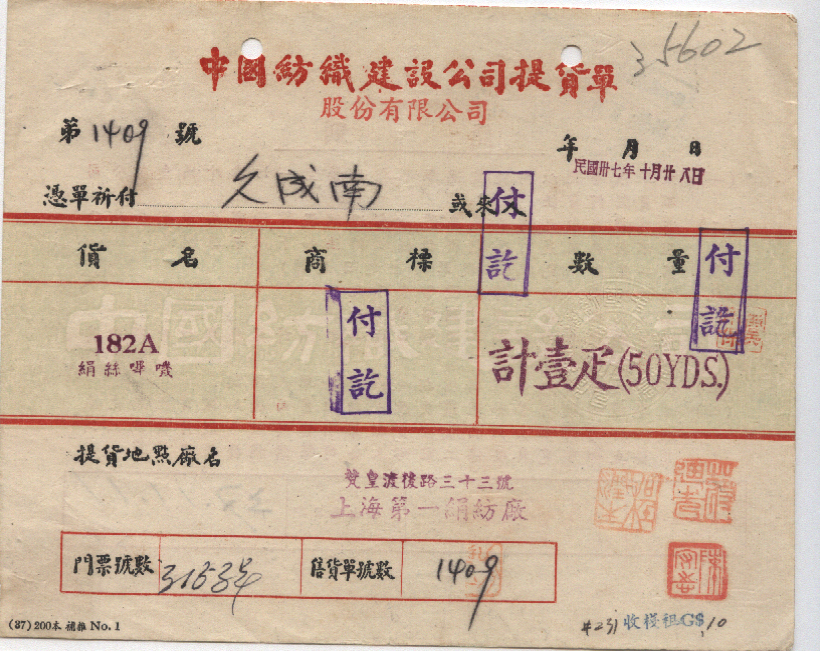 35602
中國紡織建設公司提貨單
股份有限公司
第1409號
年 月 日
民國卅七年十月廿八日
憑單祈付 久成南 或來人
付訖
貨名 商標 數量
付訖
182A
絹絲嗶嘰
付訖
計壹疋(50YDS.)
提貨地點廠名
梵皇渡後路三十三號
上海第一絹紡廠
門票號數 3153号 售貨單號數 1409
(37) 200本 No. 1
#231 收棧租G$.10